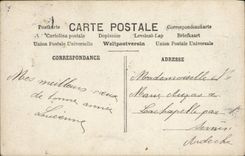 Postkarte
CARTE POSTALE
Correspondenzkarte
Cartolina postale Dopisnice Levelező-Lap Briefkaart
Union Postale Universelle Weltpostverein Union Postale Universelle
CORRESPONDANCE
ADRESSE
Mes meilleurs vœux
de bonne année
Mademoiselle
Marie
Lachapelle par
Ardèche